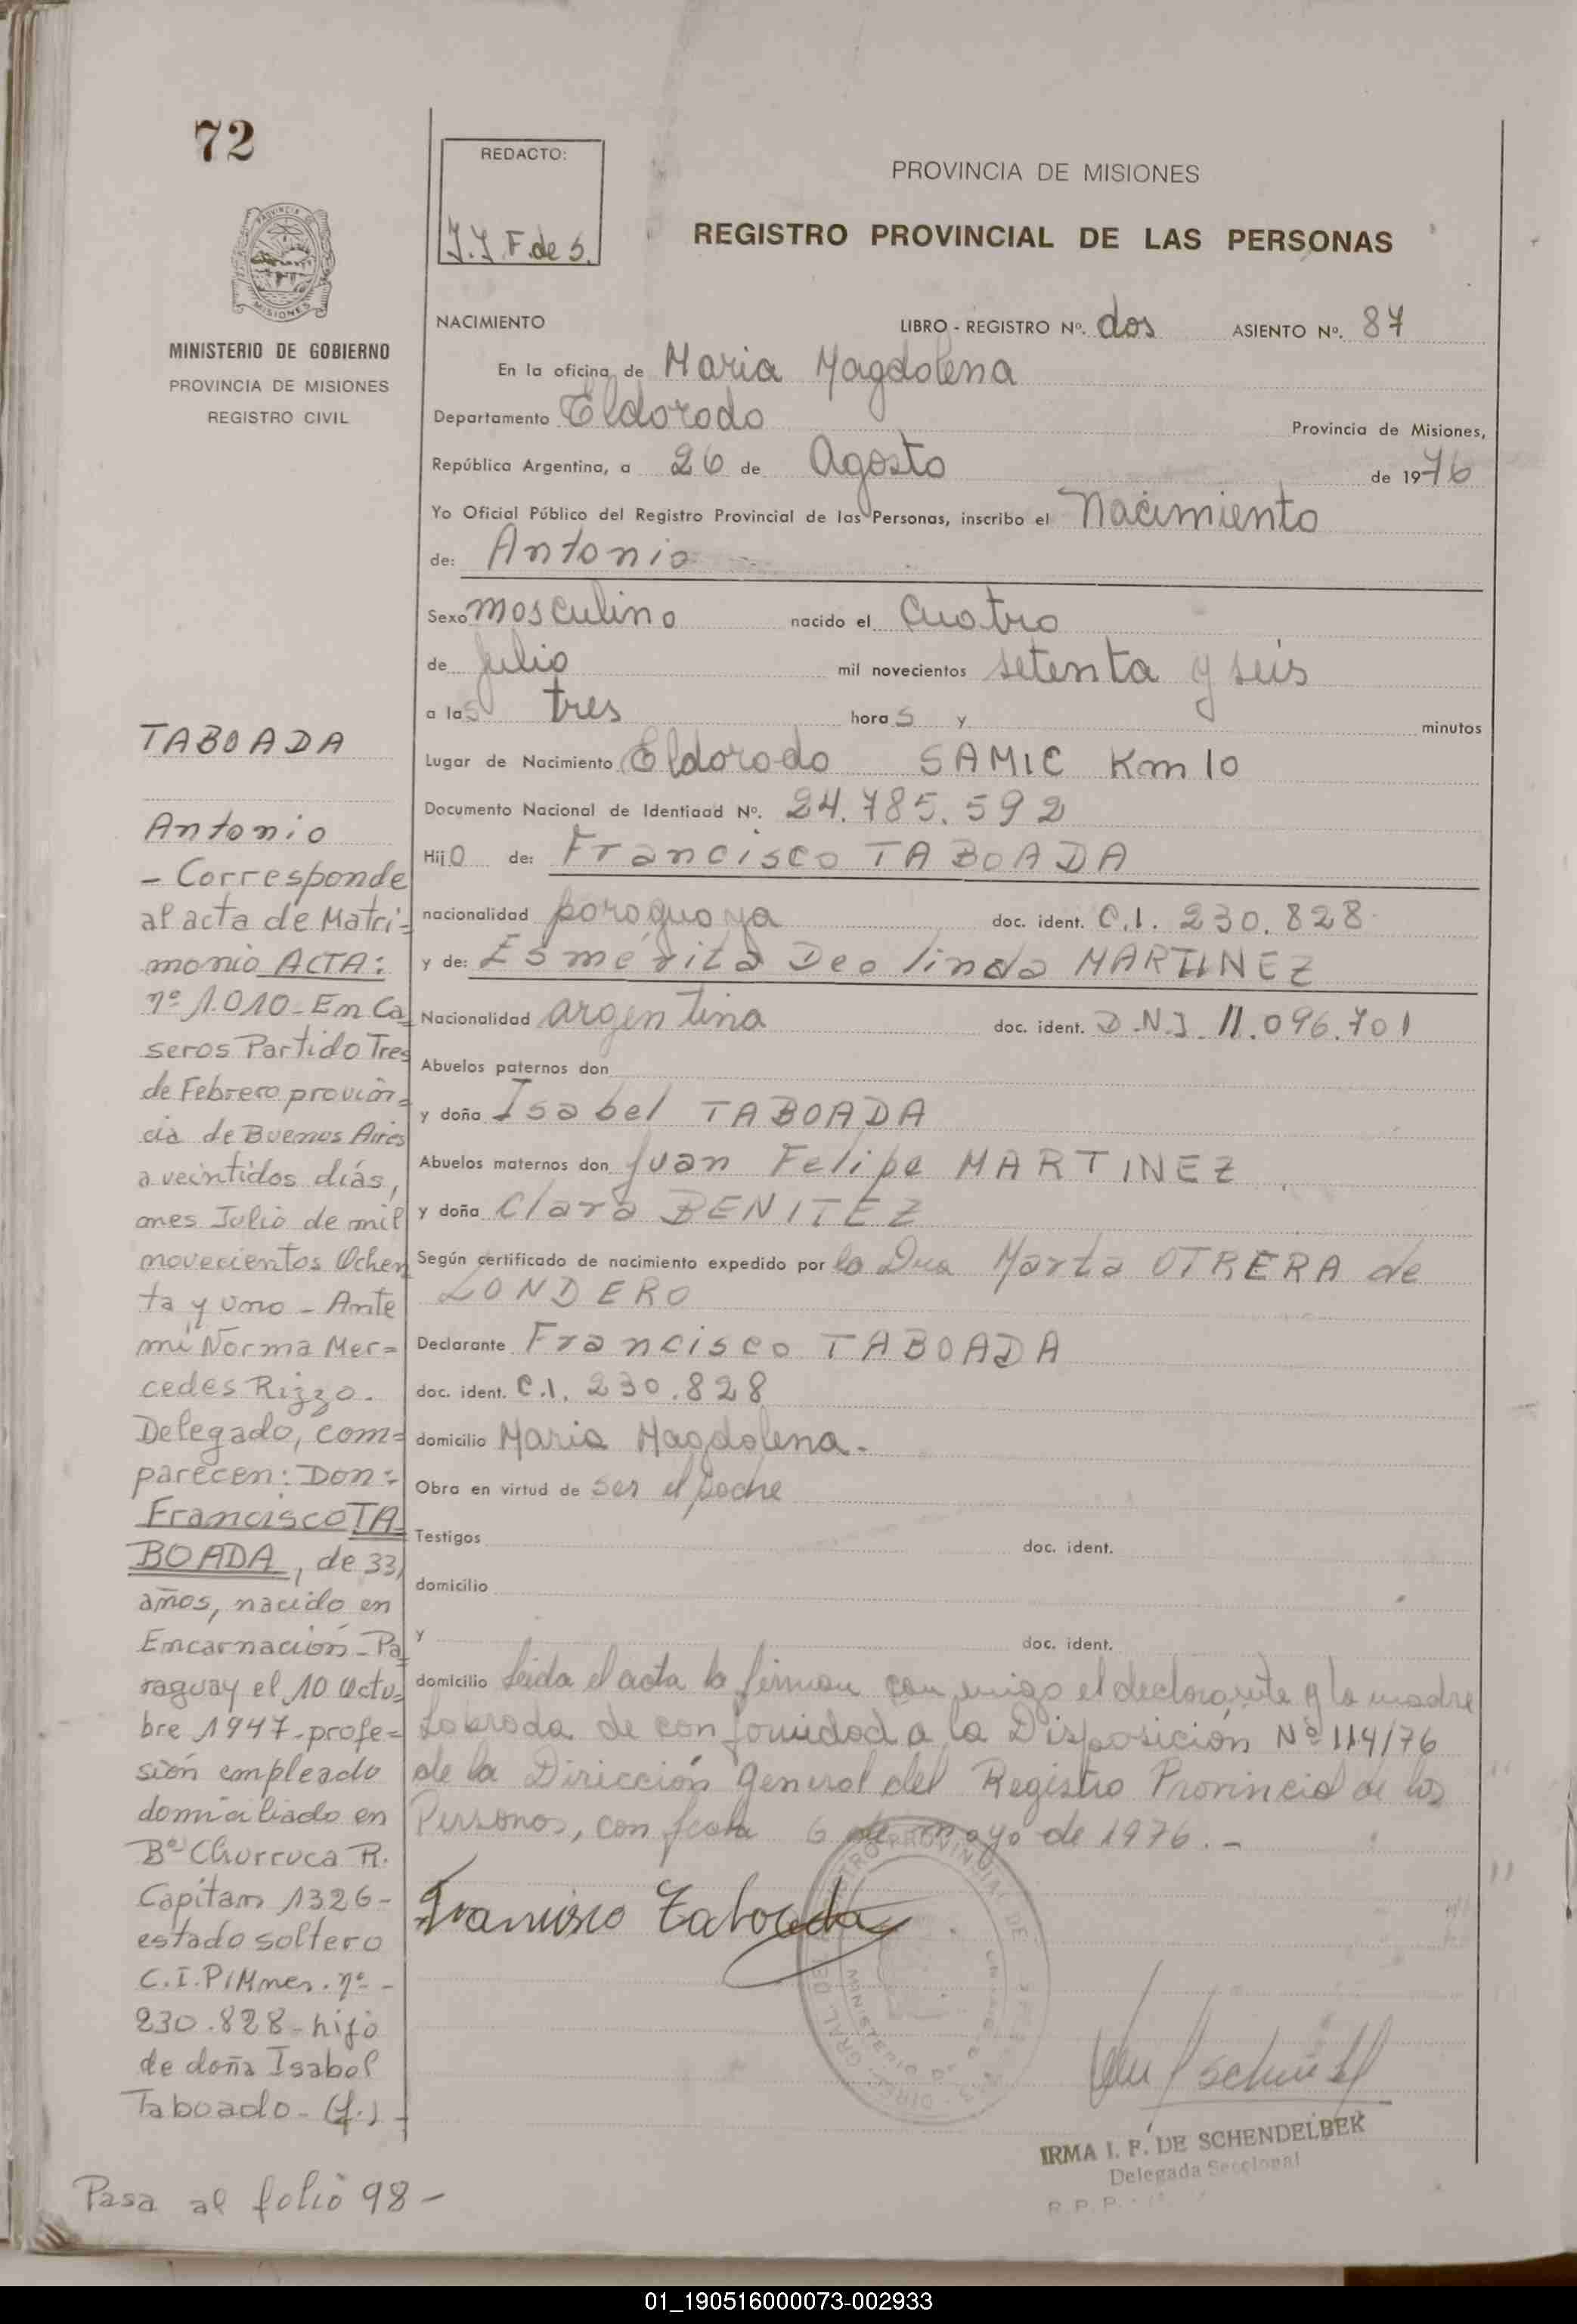 72
MINISTERIO DE GOBIERNO
PROVINCIA DE MISIONES
REGISTRO CIVIL
REDACTO:
PROVINCIA DE MISIONES
REGISTRO PROVINCIAL DE LAS PERSONAS
NACIMIENTO LIBRO - REGISTRO Nº. dos ASIENTO Nº. 87
En la oficina de Maria Magdalena
Departamento Eldorado Provincia de Misiones,
República Argentina, a 26 de Agosto de 1976
Yo Oficial Público del Registro Provincial de las Personas, inscribo el Nacimiento
de: Antonio
Sexo masculino nacido el Cuatro
de Julio mil novecientos setenta y seis
a las tres horas y minutos
Lugar de Nacimiento Eldorado SAMIC Km 10
Documento Nacional de Identidad Nº. 24.785.592
Hijo de: Francisco TABOADA
nacionalidad paraguaya doc. ident. C.I. 230.828
y de: Esmérita Deolinda MARTINEZ
Nacionalidad argentina doc. ident. D.N.I. 11.096.701
Abuelos paternos don
y doña Isabel TABOADA
Abuelos maternos don Juan Felipe MARTINEZ
y doña Clara BENITEZ
Según certificado de nacimiento expedido por la Dra Marta OTRERA de
LONDERO
Declarante Francisco TABOADA
doc. ident. C.I. 230.828
domicilio Maria Magdalena.
Obra en virtud de ser el padre
Testigos doc. ident.
domicilio
y doc. ident.
domicilio Leida el acta la firman con migo el declarante y la madre
de conformidad a la Disposición Nº 114/76
de la Dirección General del Registro Provincial de las
Personas, con fecha 6 de mayo de 1976.-
Francisco Taboada
IRMA I. F. DE SCHENDELBEK
Delegada Seccional
R. P. P.
TABOADA
Antonio
- Corresponde
al acta de Matri-
monio ACTA:
nº 1.010- En Ca
seros Partido Tres
de Febrero provin=
cia de Buenos Aires
a veintidos días,
mes Julio de mil
novecientos Ochen
ta y uno - Ante
mi Norma Mer=
cedes Rizzo.
Delegado, com=
parecen: Don:
Francisco TA
BOADA, de 33
años, nacido en
Encarnación - Pa
raguay el 10 Octu=
bre 1947. profe=
sión empleado
domiciliado en
Bº Churruca R.
Capitan 1326-
estado soltero
C.I. nº -
230.828-hijo
de doña Isabel
Taboado -
Pasa al folio 98-
01_190516000073-002933